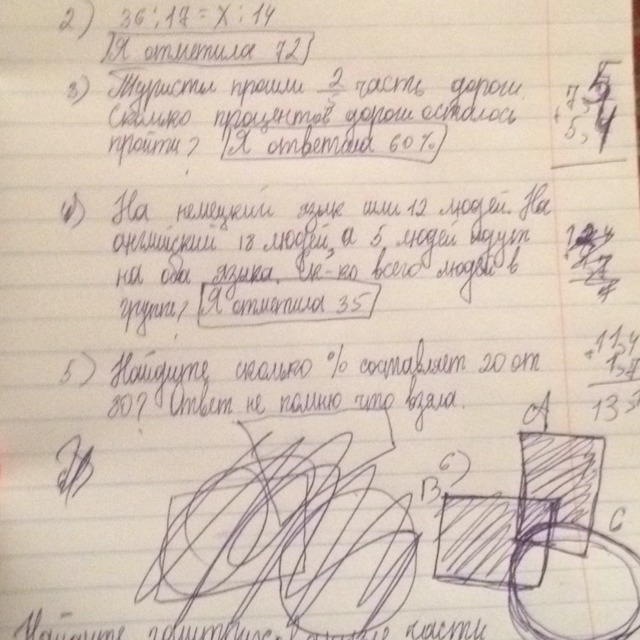 2) 36:17 = x:14
Я отметила 72
3) Туристы прошли 2/5 часть дороги.
Сколько процентов дороги осталось
пройти? Я ответила 60%
4) На немецкий язык шли 12 людей. На
английский 18 людей, а 5 людей идут
на оба языка. Ск-ко всего людей в
группе? Я отметила 35
5) Найдите сколько % составляет 20 от
80? Ответ не помню что взяла.
11,4
13,
A
6)
B
C
Найдите части